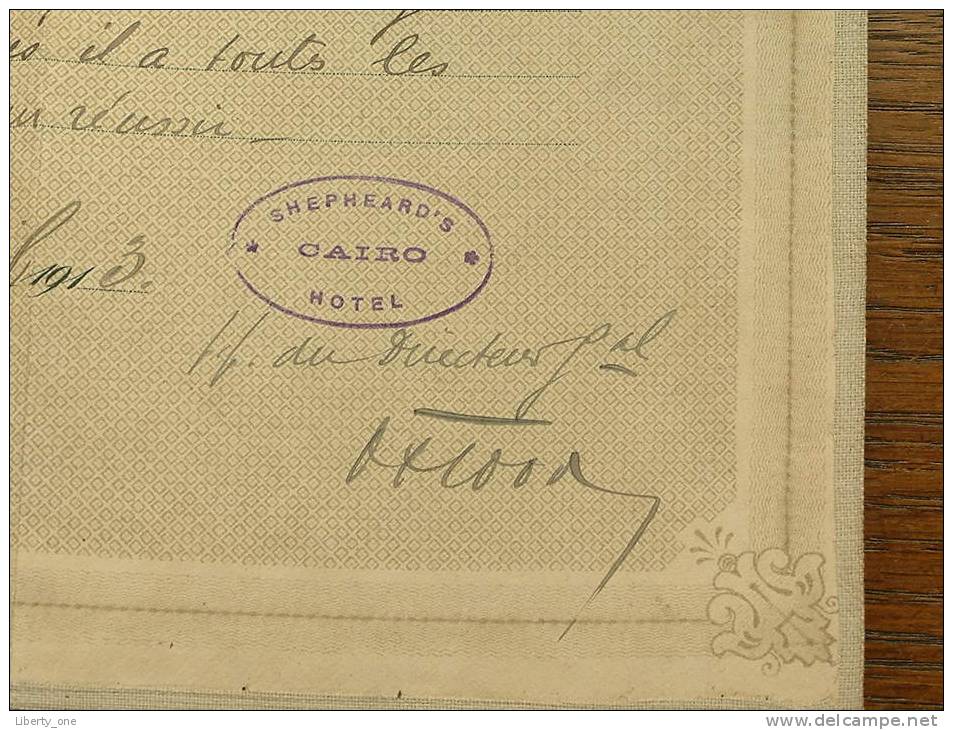 il a toutes les
réussir
1913.
SHEPHEARD'S
CAIRO
HOTEL
du Directeur Gal
Liberty_one
www.delcampe.net